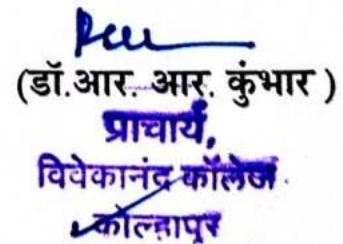 (डॉ.आर. आर. कुंभार )
प्राचार्य,
विवेकानंद कॉलेज
कोल्हापूर